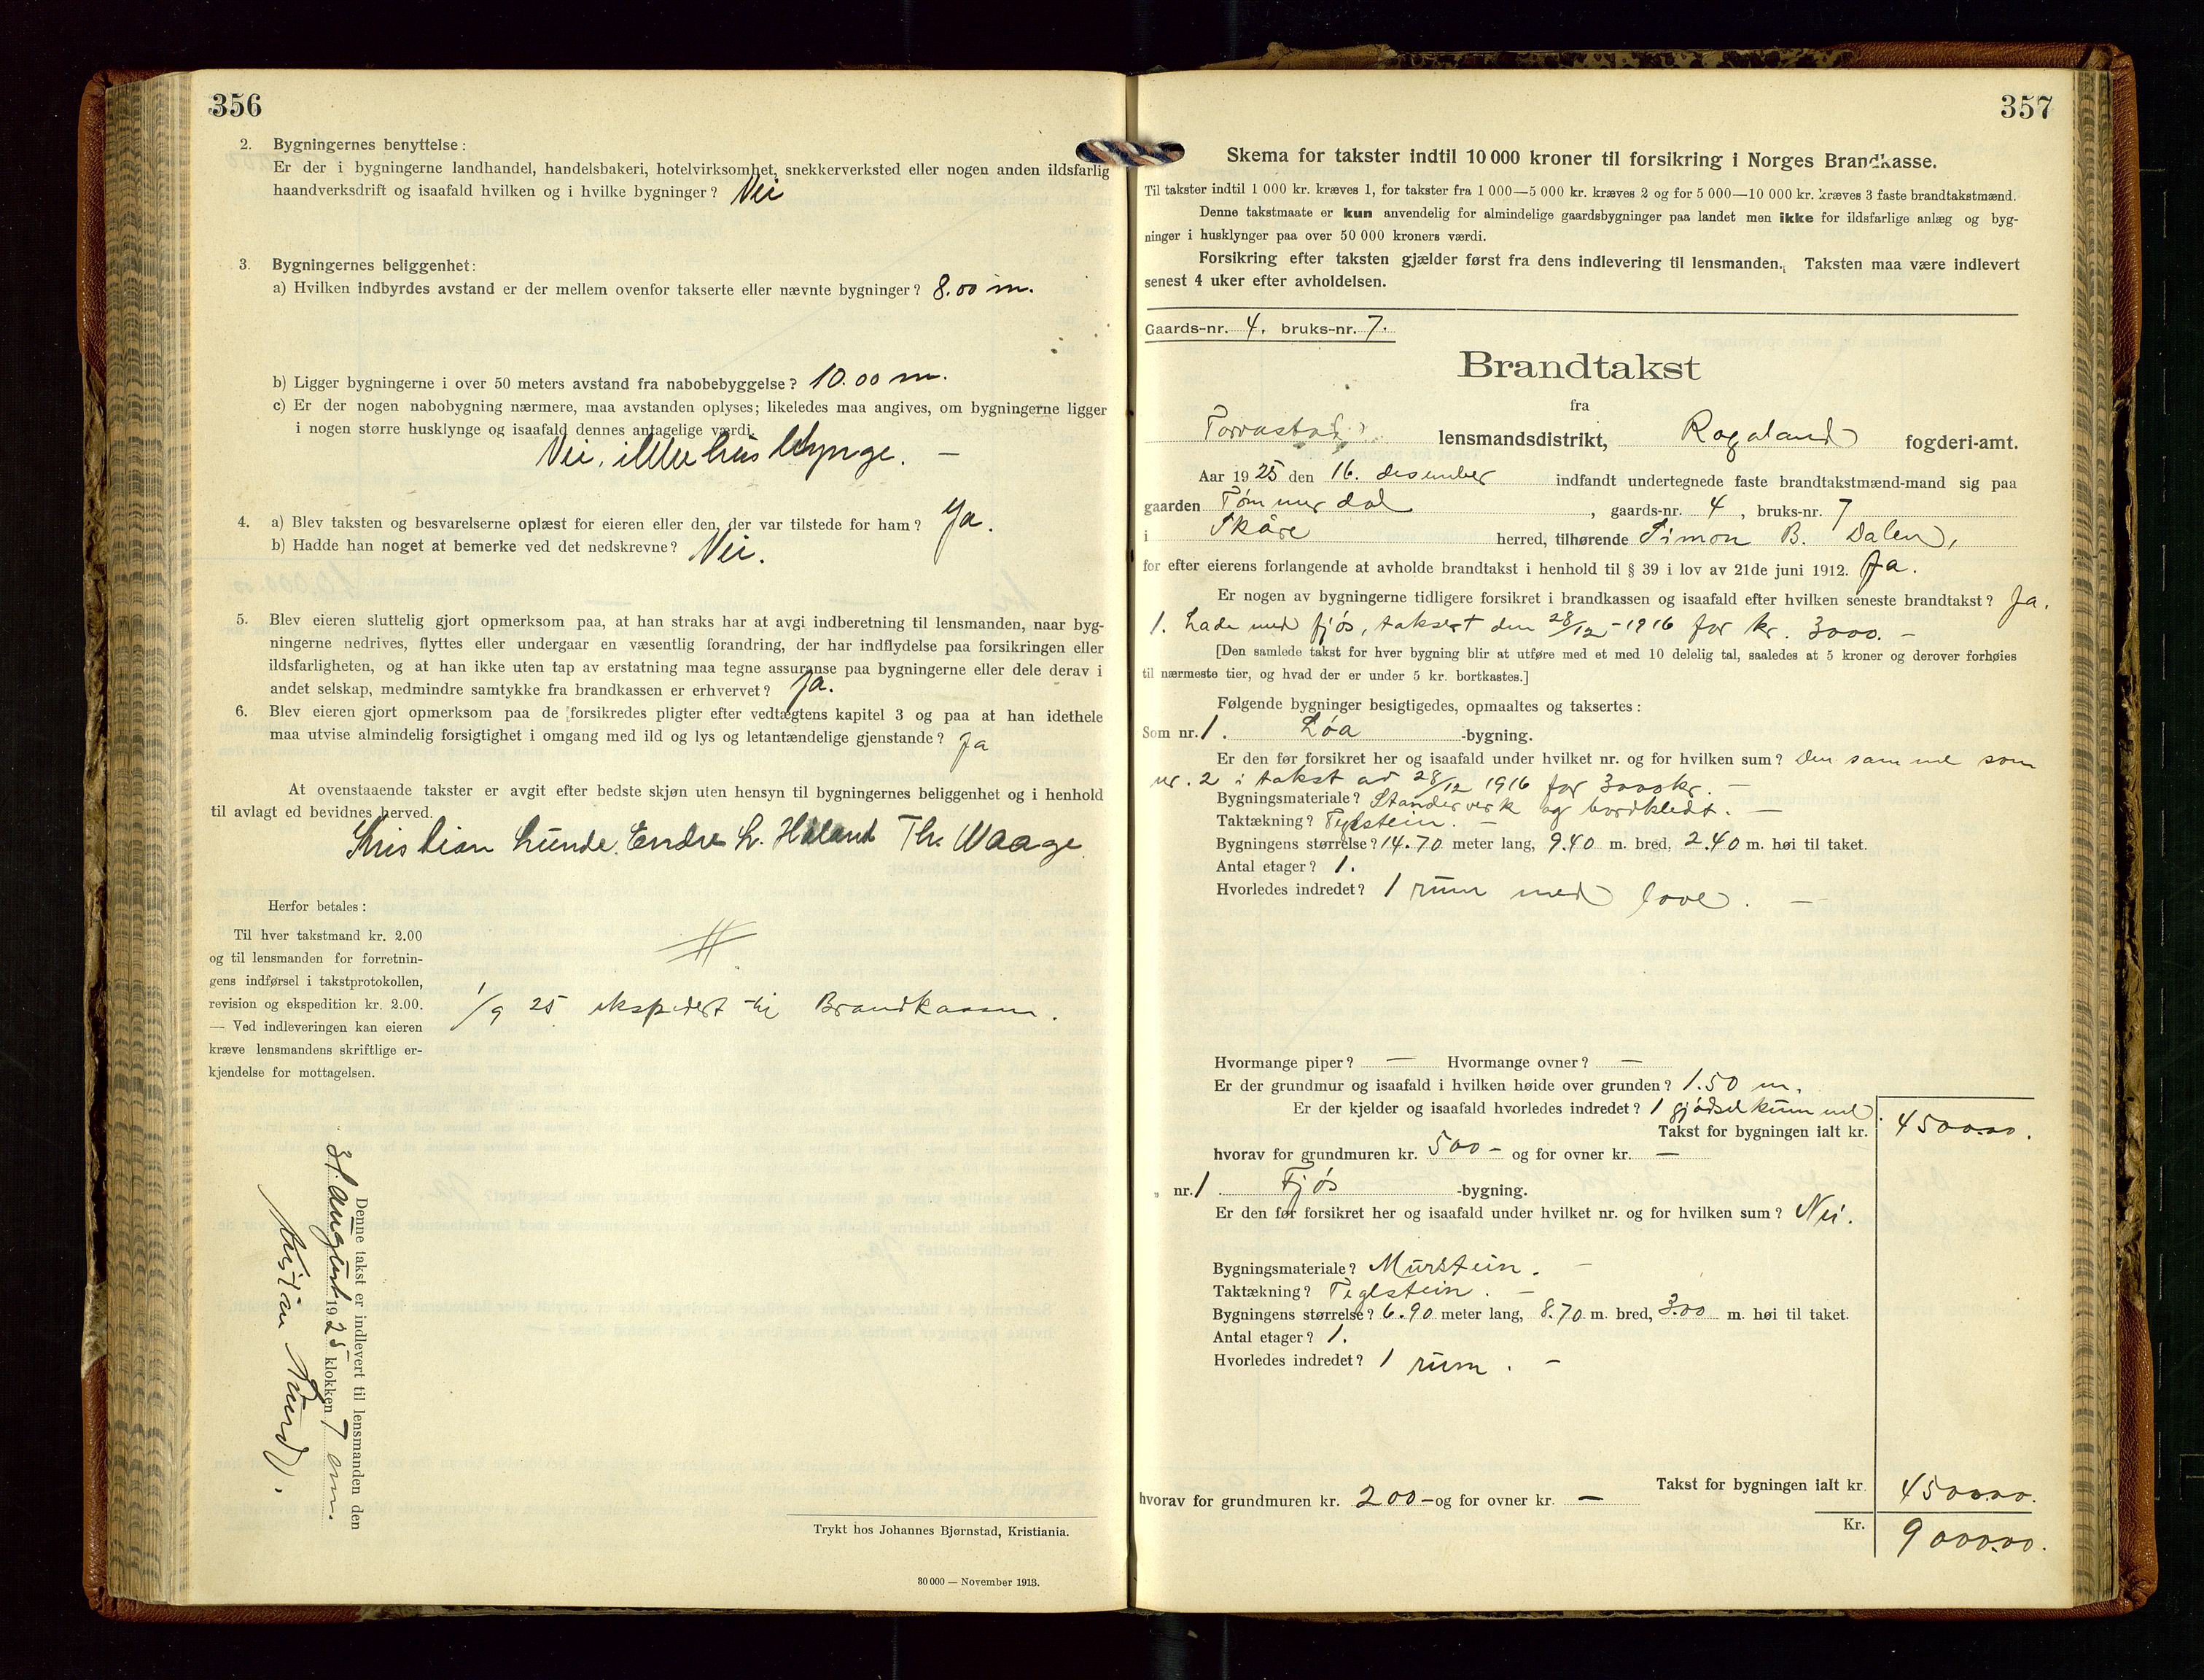 356
2. Bygningernes benyttelse:
Er der i bygningerne landhandel, handelsbakeri, hotelvirksomhet, snekkerverksted eller nogen anden ildsfarlig
haandverksdrift og isaafald hvilken og i hvilke bygninger? Nei
3. Bygningernes beliggenhet:
a) Hvilken indbyrdes avstand er der mellem ovenfor takserte eller nævnte bygninger? 8.00 m.
b) Ligger bygningerne i over 50 meters avstand fra nabobebyggelse? 10.00 m.
c) Er der nogen nabobygning nærmere, maa avstanden oplyses; likeledes maa angives, om bygningerne ligger
i nogen større husklynge og isaafald dennes antagelige værdi.
Nei, ikke husklynge. —
4. a) Blev taksten og besvarelserne oplæst for eieren eller den, der var tilstede for ham? Ja.
b) Hadde han noget at bemerke ved det nedskrevne? Nei.
5. Blev eieren sluttelig gjort opmerksom paa, at han straks har at avgi indberetning til lensmanden, naar byg-
ningerne nedrives, flyttes eller undergaar en væsentlig forandring, der har indflydelse paa forsikringen eller
ildsfarligheten, og at han ikke uten tap av erstatning maa tegne assuranse paa bygningerne eller dele derav i
andet selskap, medmindre samtykke fra brandkassen er erhvervet? Ja.
6. Blev eieren gjort opmerksom paa de forsikredes pligter efter vedtægtens kapitel 3 og paa at han idethele
maa utvise almindelig forsigtighet i omgang med ild og lys og letantændelige gjenstande? Ja
At ovenstaaende takster er avgit efter bedste skjøn uten hensyn til bygningernes beliggenhet og i henhold
til avlagt ed bevidnes herved.
Kristian Lunde. Endre L. Håland Th. Waage
Herfor betales:
Til hver takstmand kr. 2.00
og til lensmanden for forretnin-
gens indførsel i takstprotokollen,
revision og ekspedition kr. 2.00.
— Ved indleveringen kan eieren
kræve lensmandens skriftlige er-
kjendelse for mottagelsen.
1/9 25 ekspedert til Brandkassen.
Denne takst er indlevert til lensmanden den
31 august 1925 klokken 7 em.
Kristian
Trykt hos Johannes Bjørnstad, Kristiania.
30 000 — November 1913.
357
Skema for takster indtil 10 000 kroner til forsikring i Norges Brandkasse.
Til takster indtil 1 000 kr. kræves 1, for takster fra 1 000—5 000 kr. kræves 2 og for 5 000—10 000 kr. kræves 3 faste brandtakstmænd.
Denne takstmaate er kun anvendelig for almindelige gaardsbygninger paa landet men ikke for ildsfarlige anlæg og byg-
ninger i husklynger paa over 50 000 kroners værdi.
Forsikring efter taksten gjælder først fra dens indlevering til lensmanden. Taksten maa være indlevert
senest 4 uker efter avholdelsen.
Gaards-nr. 4, bruks-nr. 7.
Brandtakst
fra
Torvastad lensmandsdistrikt, Rogaland fogderi-amt.
Aar 1925 den 16. desember indfandt undertegnede faste brandtakstmænd-mand sig paa
gaarden Tømmerdal, gaards-nr. 4, bruks-nr. 7
i Skåre herred, tilhørende Simon B. Dalen,
for efter eierens forlangende at avholde brandtakst i henhold til § 39 i lov av 21de juni 1912. Ja.
Er nogen av bygningerne tidligere forsikret i brandkassen og isaafald efter hvilken seneste brandtakst? Ja.
1. Lade med fjøs, taksert den 28/12-1916 for kr. 3000. —
[Den samlede takst for hver bygning blir at utføre med et med 10 delelig tal, saaledes at 5 kroner og derover forhøies
til nærmeste tier, og hvad der er under 5 kr. bortkastes.]
Følgende bygninger besigtigedes, opmaaltes og taksertes:
Som nr. 1. Løa -bygning.
Er den før forsikret her og isaafald under hvilket nr. og for hvilken sum? Den samme som
nr. 2 i takst av 28/12 1916 for 3000 kr. —
Bygningsmateriale? Standerverk og bordkledt. —
Taktækning? Teglstein. —
Bygningens størrelse? 14.70 meter lang, 9.40 m. bred, 2.40 m. høi til taket.
Antal etager? 1.
Hvorledes indredet? 1 rum med love. —
Hvormange piper? — Hvormange ovner? —
Er der grundmur og isaafald i hvilken høide over grunden? 1.50 m.
Er der kjelder og isaafald hvorledes indredet? 1 gjødselkummel.
Takst for bygningen ialt kr. 4500.00.
hvorav for grundmuren kr. 500 — og for ovner kr. —
„ nr. 1. Fjøs -bygning.
Er den før forsikret her og isaafald under hvilket nr. og for hvilken sum? Nei.
Bygningsmateriale? Murstein. —
Taktækning? Teglstein. —
Bygningens størrelse? 6.90 meter lang, 8.70 m. bred, 3.00 m. høi til taket.
Antal etager? 1.
Hvorledes indredet? 1 rum. —
Takst for bygningen ialt kr. 4500.00.
hvorav for grundmuren kr. 200 — og for ovner kr. —
Kr. 9000.00.